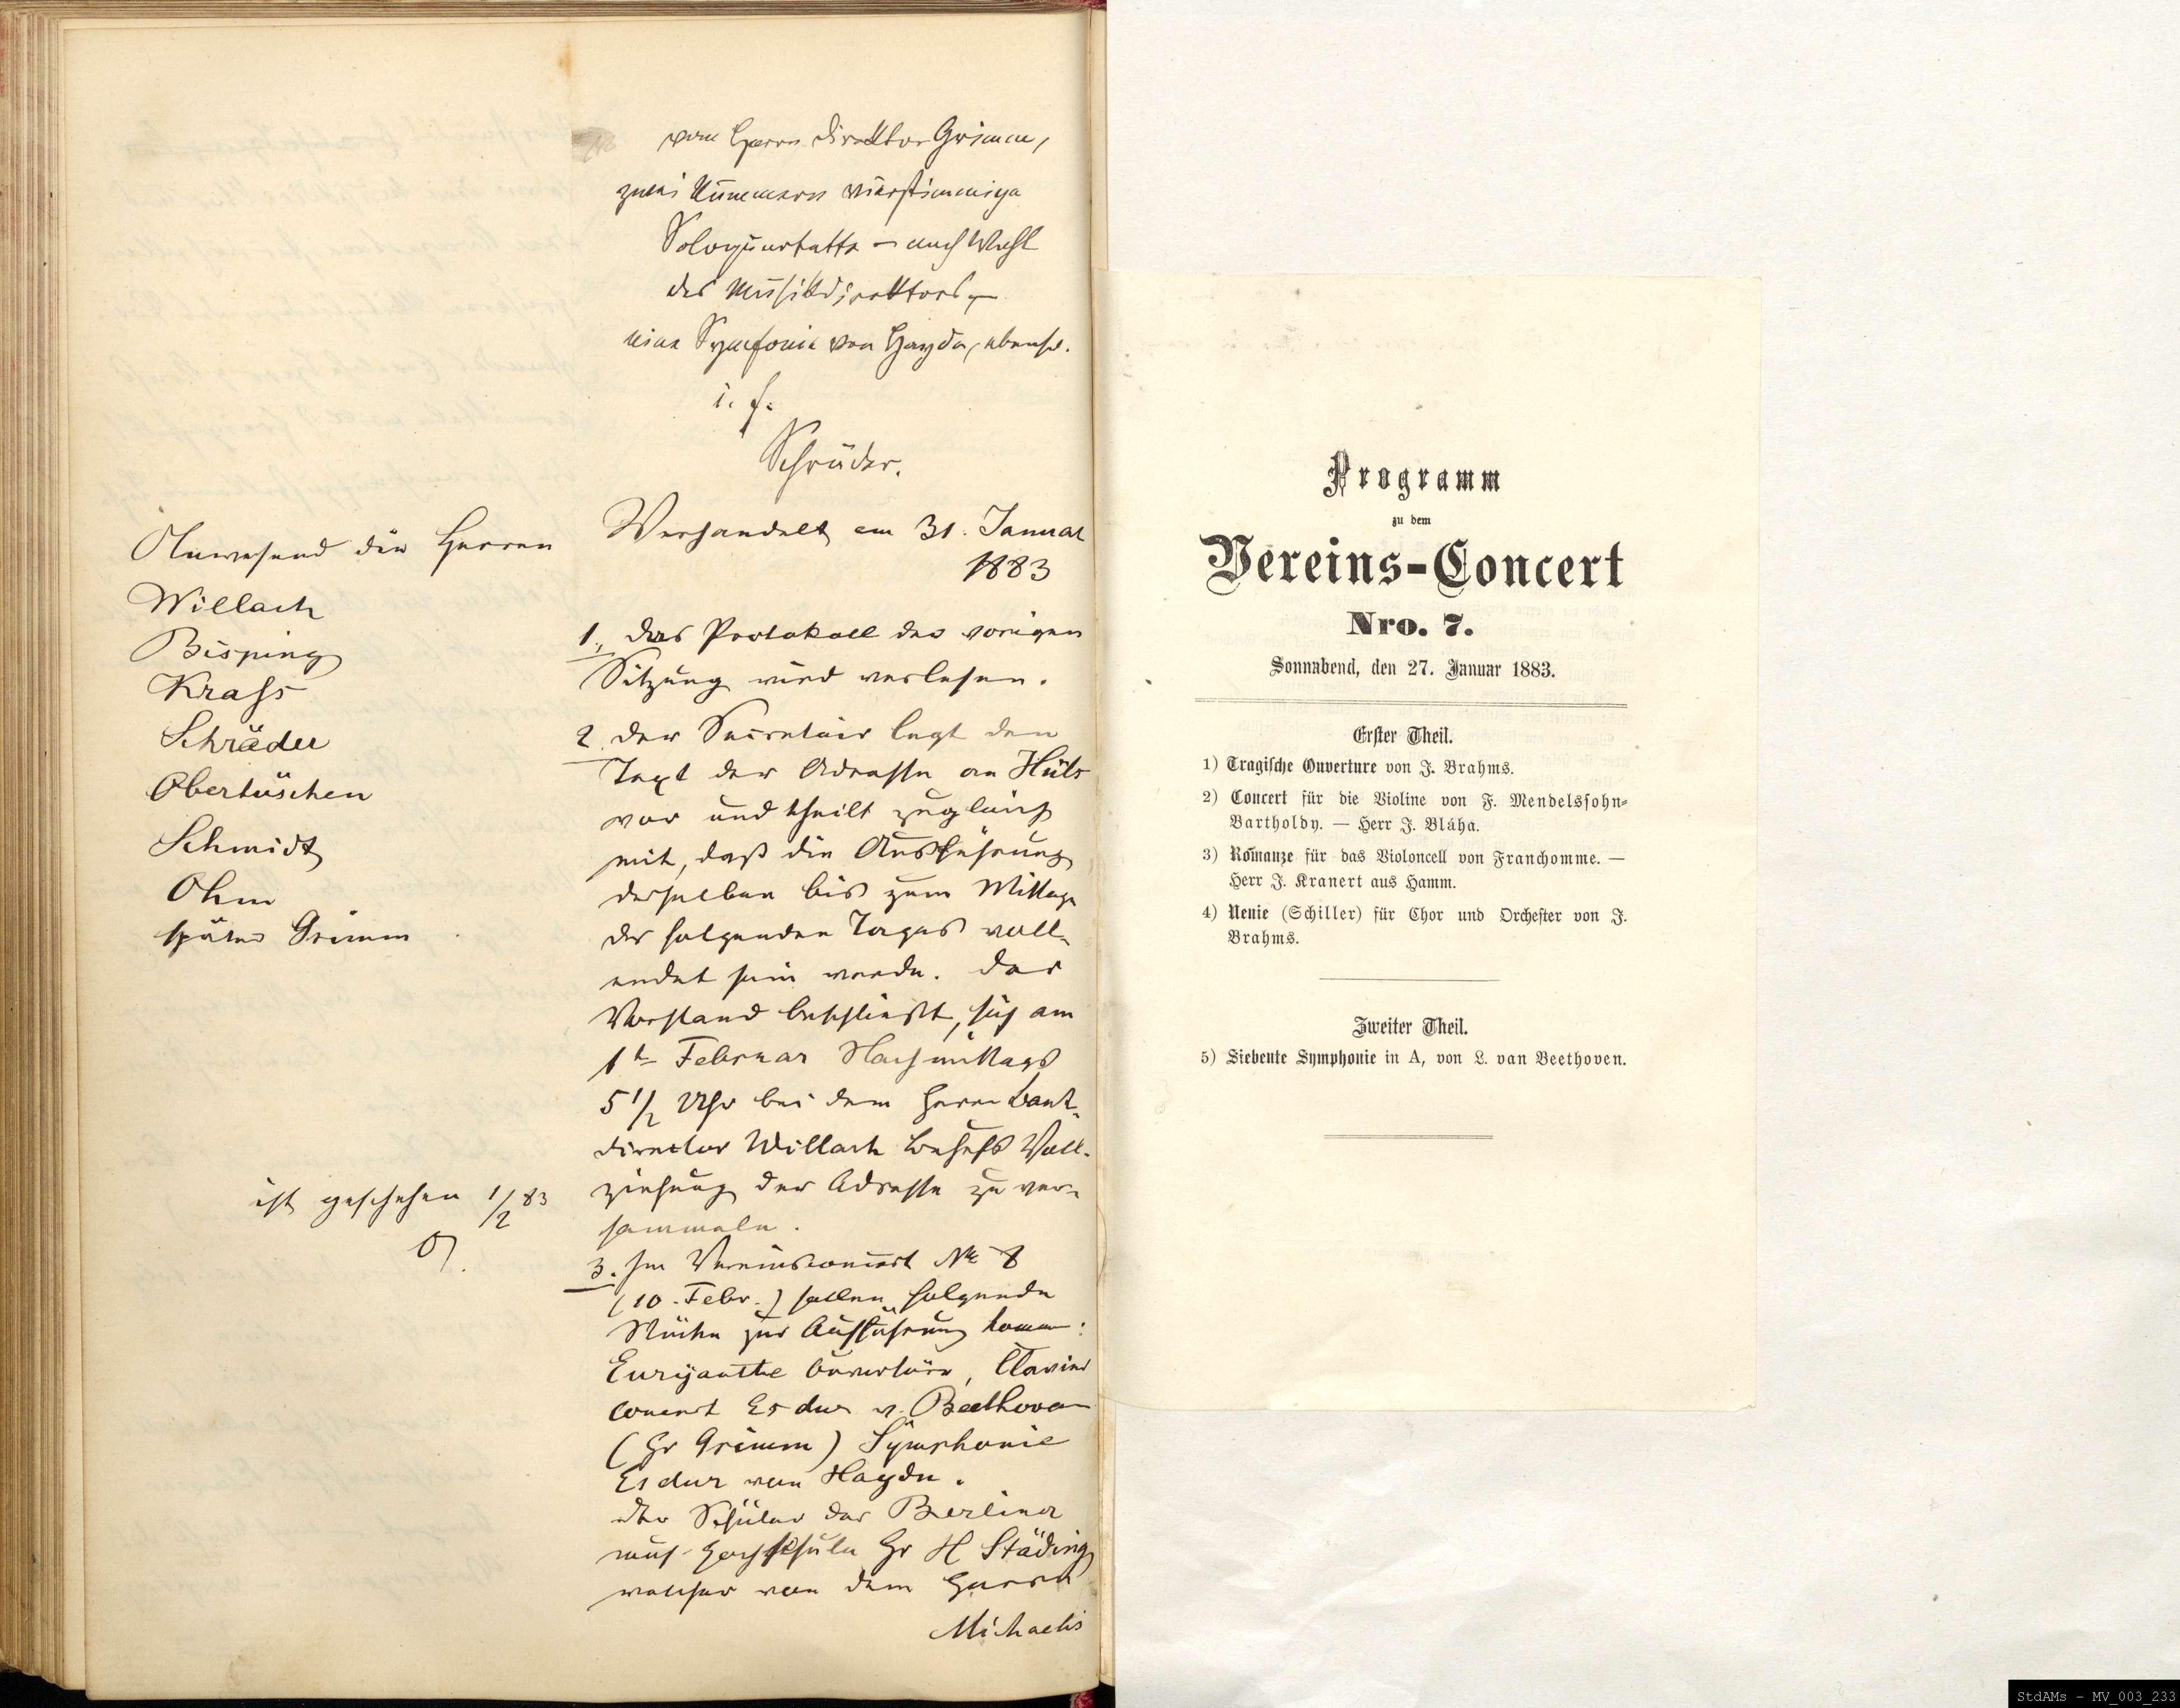 vom Herrn Direktor Grimm,
zwei Nummern vierstimmige
Soloquartette – nach Wahl
des Musikdirektors –
eine Symfonie von Haydn, ebenso.
Schräder.
Anwesend die Herren
Willach
Bisping
Krass
Schräder
Obertüschen
Schmidt
Ohm
später Grimm
Verhandelt am 31. Januar
1883
1., Das Protokoll der vorigen
Sitzung wird verlesen.
2. Der Secretair legt den
Text der Adresse an Hüls
vor und theilt zugleich
mit, daß die Ausführung
derselben bis zum Mittage
des folgenden Tages voll-
endet sein werde. Der
Vorstand beschließt, sich am
1t Februar Nachmittags
5 1/2 Uhr bei dem Herrn Bank-
director Willach behufs Voll-
ziehung der Adresse zu ver-
sammeln.
ist geschehen 1/2 83
O.
3. Im Vereinsconcert No 8
(10. Febr.) sollen folgende
Stücke zur Aufführung komm:
Euryanthe Ouverture, Clavier
concert Es dur v. Beethoven
(Hr Grimm) Symphonie
Es dur von Haydn.
Der Schüler der Berliner
mus. Hochschule Hr H Städing
welcher von dem Herrn
Michaelis
Programm
zu dem
Vereins-Concert
Nro. 7.
Sonnabend, den 27. Januar 1883.
Erster Theil.
1) Tragische Ouverture von J. Brahms.
2) Concert für die Violine von F. Mendelssohn-
Bartholdy. — Herr J. Bláha.
3) Romanze für das Violoncell von Franchomme. —
Herr J. Kranert aus Hamm.
4) Nenie (Schiller) für Chor und Orchester von J.
Brahms.
Zweiter Theil.
5) Siebente Symphonie in A, von L. van Beethoven.
StdAMs - MV_003_233